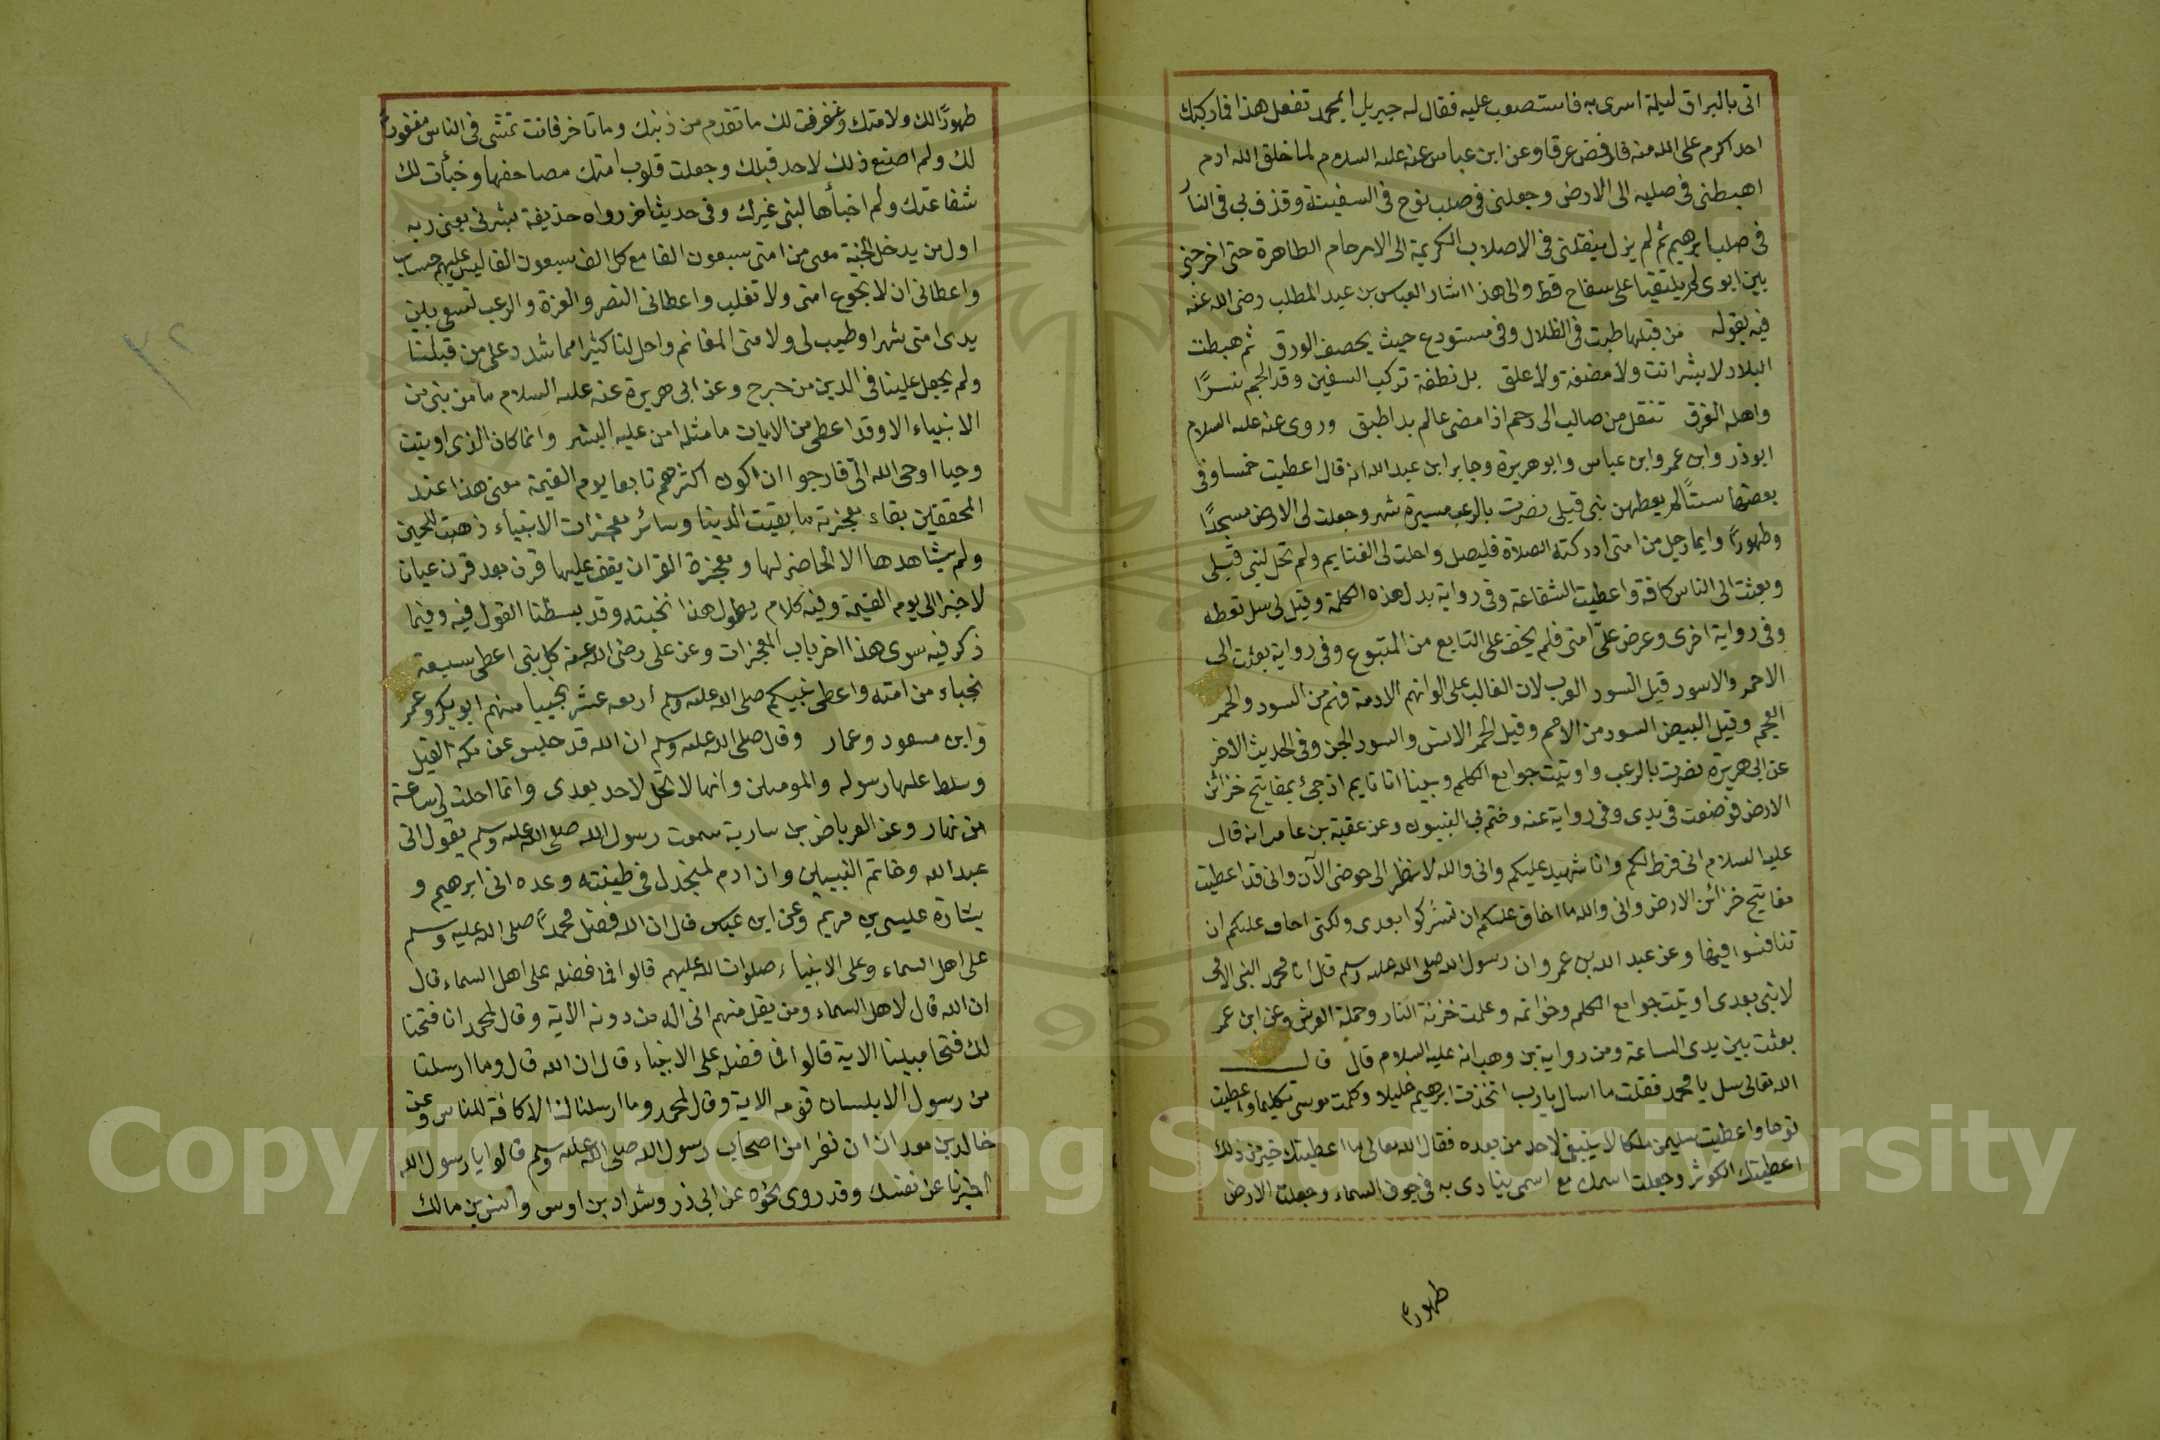 اتى بالبراق ليلة اسرى به فاستصعب عليه فقال له جبريل ابمحمد تفعل هذا فما ركبك
احد اكرم على الله منه فارفض عرقا وعن ابن عباس عنه عليه السلام لما خلق الله ادم
اهبطنى فى صلبه الى الارض وجعلنى فى صلب نوح فى السفينة وقذف بى فى النار
فى صلب ابرهيم ثم لم يزل ينقلنى فى الاصلاب الكريمة الى الارحام الطاهرة حتى اخرجنى
بين ابوى لم يلتقيا على سفاح قط والى هذا اشار العباس بن عبد المطلب رضى الله عنه
فيه بقوله من قبلها طبت فى الظلال وفى مستودع حيث يخصف الورق ثم هبطت
البلاد لا بشر انت ولا مضغة ولا علق بل نطفة تركب السفين وقد الجم نسرًا
واهله الغرق تنقل من صالب الى رحم اذا مضى عالم بدا طبق وروى عنه عليه السلام
ابوذر وابن عمر وابن عباس وابو هريرة وجابر ابن عبد الله انه قال اعطيت خمسا وفى
بعضها ستًا لم يعطهن نبى قبلى نصرت بالرعب مسيرة شهر وجعلت لى الارض مسجدًا
وطهورًا وايما رجل من امتى ادركته الصلاة فليصل واحلت لى الغنايم ولم تحل لنبى قبلى
وبعثت الى الناس كافة واعطيت الشفاعة وفى رواية بدل هذه الكلمة وقيل لى سل تعطه
وفى رواية اخرى وعرض علىّ امتى فلم يخف على التابع من المتبوع وفى رواية بعثت الى
الاحمر والاسود قيل السود العرب لان الغالب على الوانهم الادمة فهم من السود والحمر
العجم وقيل البيض السود من الامم وقيل الحمر الانس والسود الجن وفى الحديث الاخر
عن ابى هريرة نصرت بالرعب واوتيت جوامع الكلم وبينا انا نايم اذ جئ بمفاتيح خزائن
الارض فوضعت فى يدى وفى رواية عنه وختم بى النبيون وعن عقبة بن عامر انه قال
عليه السلام انى فرط لكم وانا شهيد عليكم وانى والله لانظر الى حوضى الآن وانى قد اعطيت
مفاتيح خزائن الارض وانى والله ما اخاف عليكم ان تشركوا بعدى ولكنى اخاف عليكم ان
تنافسوا فيها وعن عبد الله بن عمرو ان رسول الله صلى الله عليه وسلم قال انا محمد النبى الامى
لا نبى بعدى اوتيت جوامع الكلم وخواتمه وعلمت خزنة النار وحملة العرش وعن ابن عمر
بعثت بين يدى الساعة ومن رواية بن وهب انه عليه السلام قال قال
الله تعالى سل يا محمد فقلت ما اسال يا رب اتخذت ابرهيم خليلا وكلمت موسى تكليما واعطيت
نوحا واعطيت سليمن ملكا لا ينبغى لاحد من بعده فقال الله تعالى ما اعطيتك خير من ذلك
اعطيتك الكوثر وجعلت اسمك مع اسمى ينادى به فى جوف السماء وجعلت الارض
طهورًا
طهورًا لك ولامتك وغفرت لك ما تقدم من ذنبك وما تاخر فانت تمشى فى الناس مغفورًا
لك ولم اصنع ذلك لاحد قبلك وجعلت قلوب امتك مصاحفها وخبأت لك
شفاعتك ولم اخبأها لنبى غيرك وفى حديث اخر رواه حذيفة بشرنى يعنى ربه
اول من يدخل الجنة معى من امتى سبعون الفا مع كل الف سبعون الفا ليس عليهم حساب
واعطانى ان لا تجوع امتى ولا تغلب واعطانى النصر والعزة والرعب تسعى بين
يدى امتى شهرا وطيب لى ولامتى المغانم واحل لنا كثيرا مما شدد على من قبلنا
ولم يجعل علينا فى الدين من حرج وعن ابى هريرة عنه عليه السلام ما من نبى من
الانبياء الا وقد اعطى من الايات ما مثله امن عليه البشر وانما كان الذى اوتيت
وحيا اوحى الله الىّ فارجوا ان اكون اكثرهم تابعا يوم القيمة معنى هذا عند
المحققين بقاء معجزته ما بقيت الدنيا وسائر معجزات الانبياء ذهبت للحين
ولم يشاهدها الا الحاضر لها ومعجزة القران يقف عليها قرن بعد قرن عيانا
لا خبرا الى يوم القيمة وفيه كلام يطول هذا نخبته وقد بسطنا القول فيه وفيما
ذكر فيه سوى هذا اخر باب المعجزات وعن على رضى الله عنه كل نبى اعطى سبعة
نجباء من امته واعطى نبيكم صلى الله عليه وسلم اربعه عشر نجيبا منهم ابو بكر وعمر
وابن مسعود وعمار وقال صلى الله عليه وسلم ان الله قد حبس عن مكة الفيل
وسلط عليها رسوله والمومنين وانها لا تحل لاحد بعدى وانما احلت لى ساعة
من نهار وعن العرباض بن سارية سمعت رسول الله صلى الله عليه وسلم يقول انى
عبد الله وخاتم النبيين وان ادم لمنجدل فى طينته وعدة ابى ابرهيم و
بشارة عيسى بن مريم وعن ابن عباس قال ان الله فضل محمدًا صلى الله عليه وسلم
على اهل السماء وعلى الانبياء صلوات الله عليهم قالوا فما فضله على اهل السماء قال
ان الله قال لاهل السماء ومن يقل منهم انى اله من دونه الآية وقال لمحمد انا فتحنا
لك فتحا مبينا الاية قالوا فما فضله على الانبياء قال ان الله قال وما ارسلنا
من رسول الا بلسان قومه الاية وقال لمحمد وما ارسلناك الا كافة للناس وعن
خالد بن معدان ان نفرا من اصحاب رسول الله صلى الله عليه وسلم قالوا يا رسول الله
اخبرنا عن نفسك وقد روى نحوه عن ابى ذر وشداد بن اوس وانس بن مالك
Copyright © King Saud University
1957